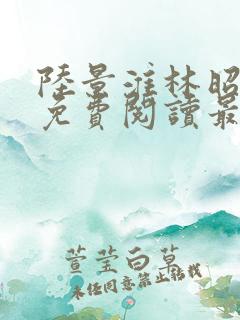 陸景淮林昭
免費閱讀最
萱莹白草
未任同意禁止转载